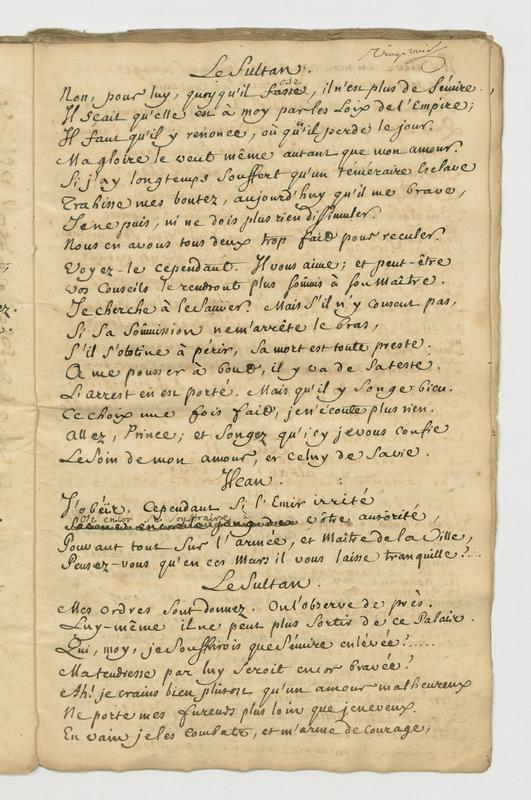 Le Sultan.
Non, pour luy, quoyqu'il fasse, il n'est plus de Sémire.
Il scait qu'elle est à moy par les Loix de l'Empire;
Il faut qu'il y renonce, où qu'il perde le jour.
Ma gloire le veut même autant que mon amour.
Si j'ay longtemps souffert qu'un téméraire Esclave
Trahisse mes bontez, aujourd'huy qu'il me brave,
Je ne puis, ni ne dois plus rien dissimuler.
Nous en avons tous deux trop fait pour reculer.
Voyez-le cependant. Il vous aime; et peut-être
vos Conseils le rendront plus soûmis à son Maître.
Je cherche à le Sauver. Mais s'il n'y consent pas,
Si sa Soûmission ne m'arrête le bras,
S'il s'obstine à périr, sa mort est toute preste.
A me pousser à bout, il y va de sa teste.
L'arrest en est porté. Mais qu'il y songe bien.
Ce choix une fois fait, je n'écoute plus rien.
Allez, Prince; et songez qu'icy je vous confie
Le Soin de mon amour, et celuy de sa vie.
Hcan.
J'obéïr. Cependant si l'Emir irrité
ose encor se soustraire à vôtre autorité,
Pouvant tout sur l'armée, et Maître de la Ville,
Pensez-vous qu'en ces Murs il vous laisse tranquille?...
Le Sultan.
Mes ordres sont donnez. On l'observe de près.
Luy-même il ne peut plus sortir de ce Palais.
Qui, moy, je souffrirois que Sémire enlevée?......
Ma tendresse par luy seroit encor bravée?
Ah! je crains bien plûtost qu'un amour malheureux
Ne porte mes fureurs plus loin que je ne veux.
En vain je les combats, et m'arme de courage;